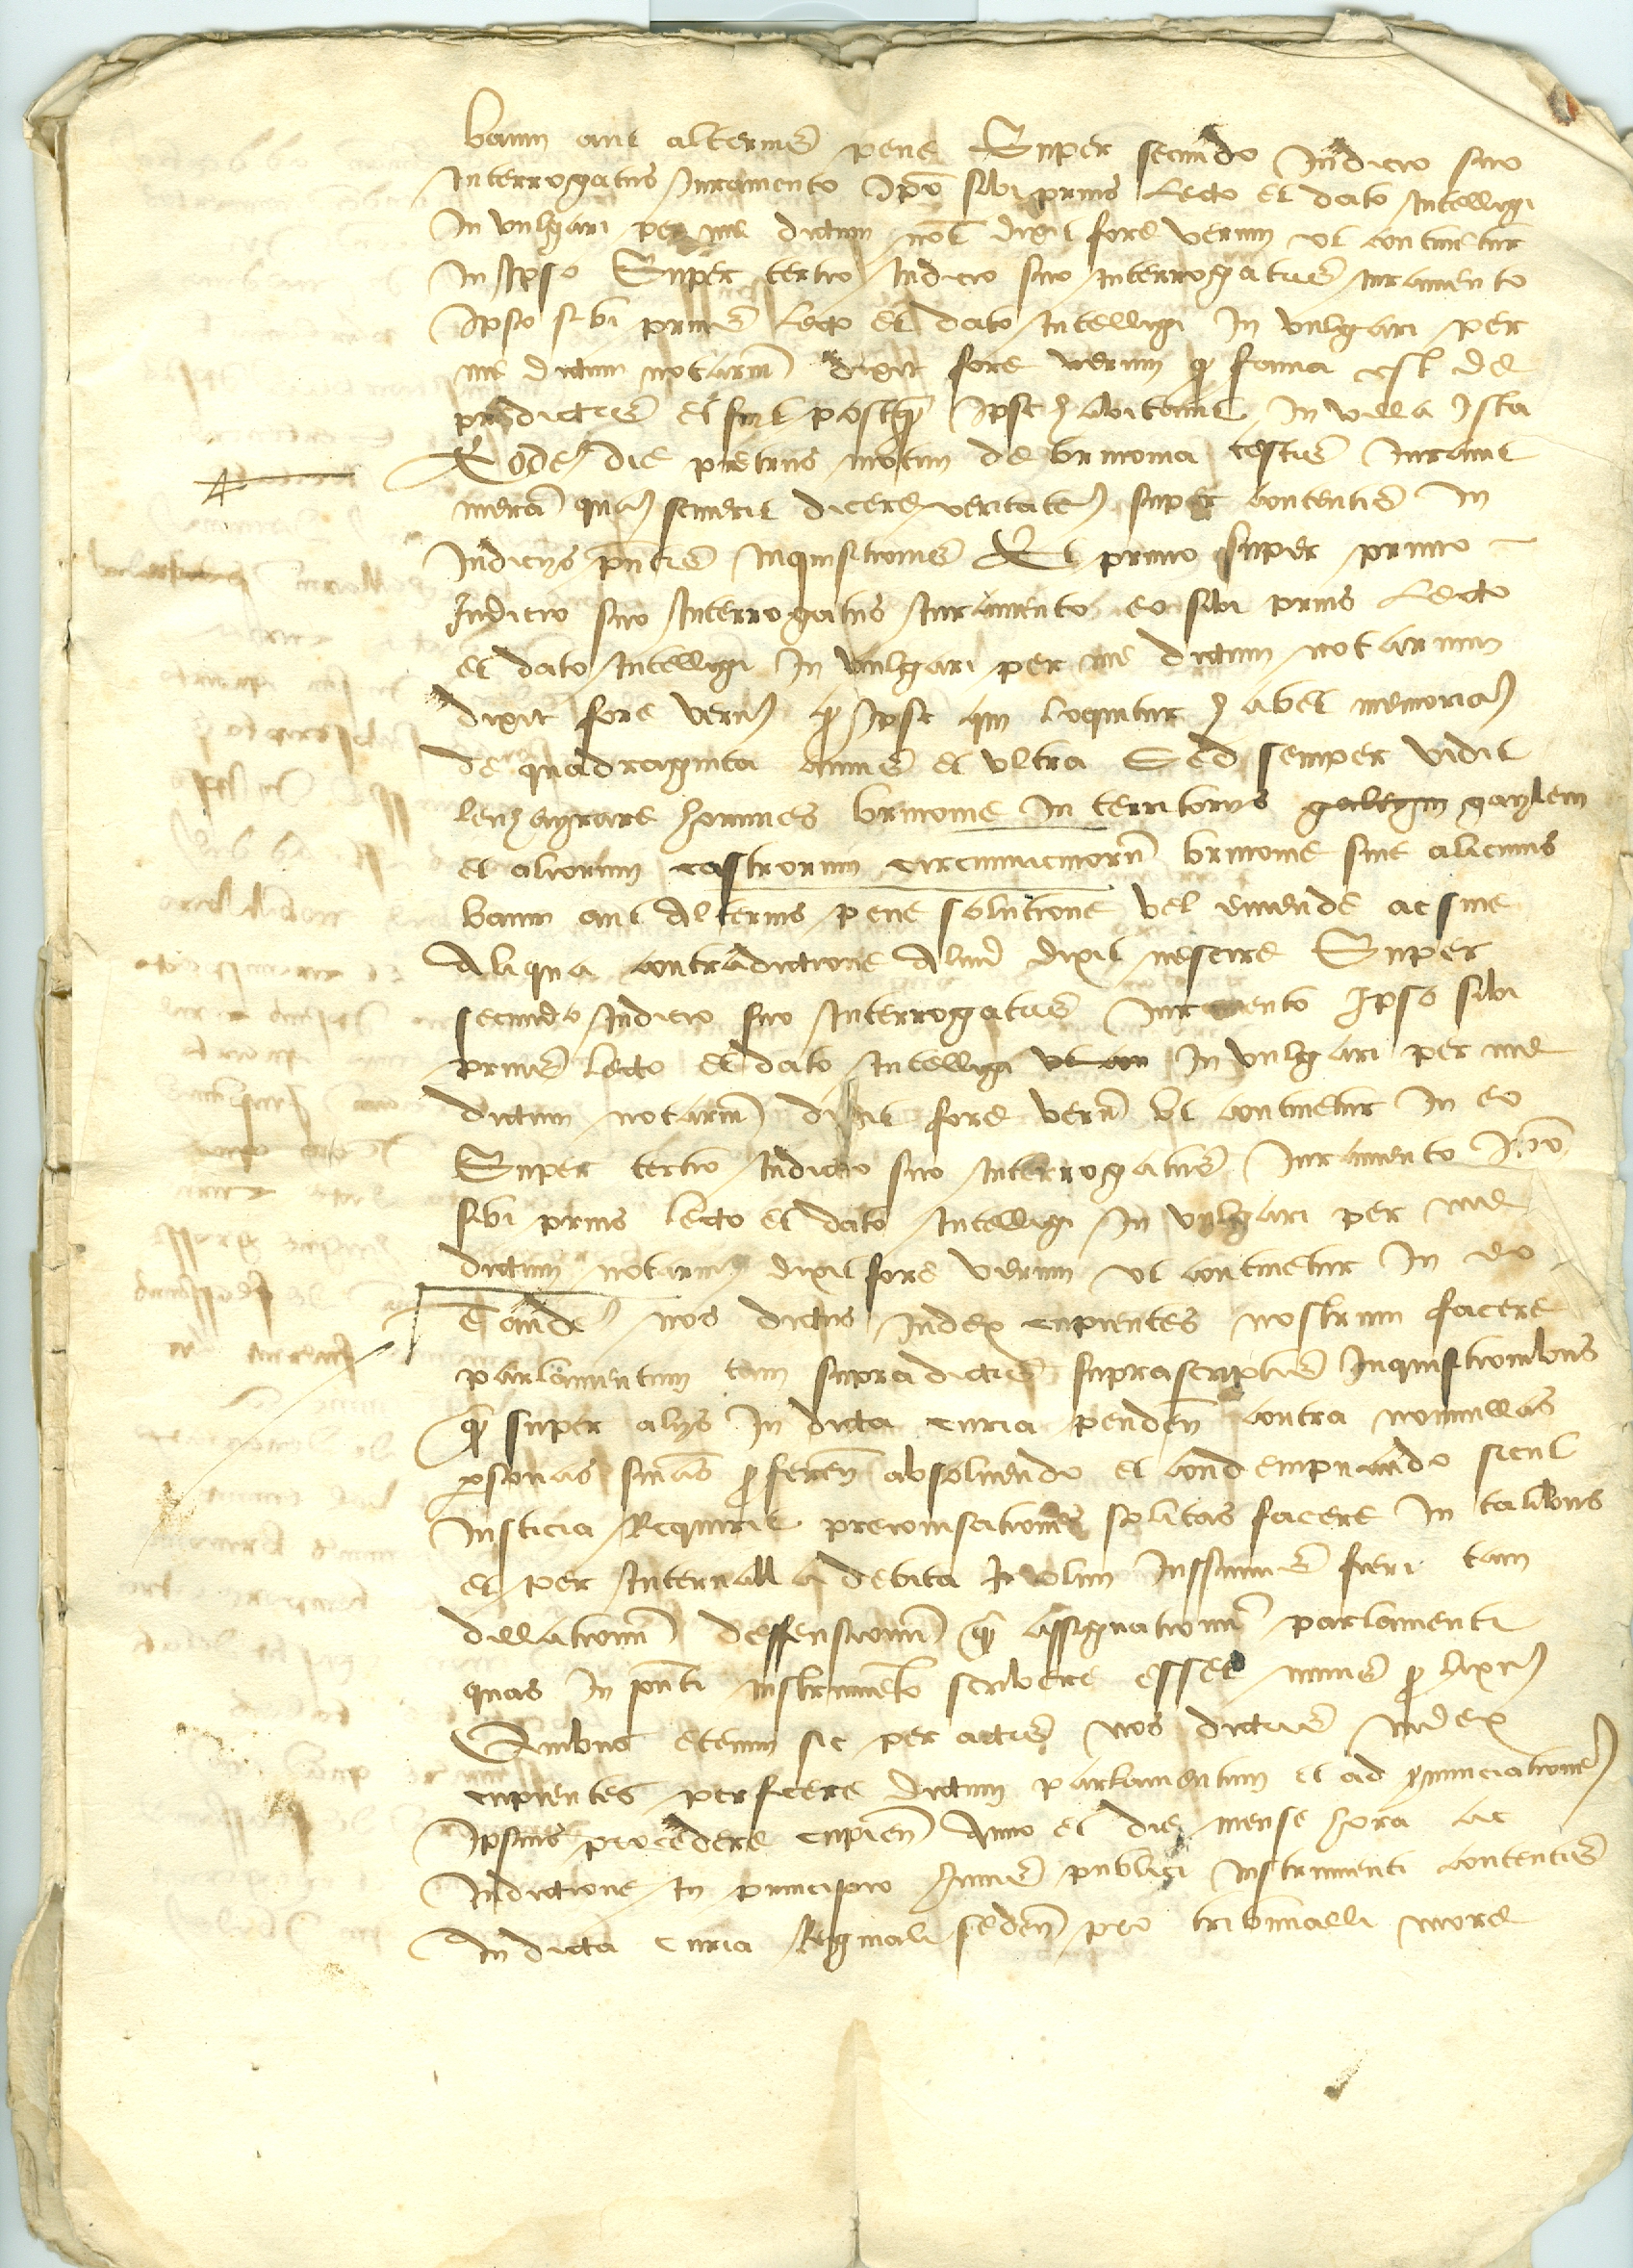 banni aut alterius pene Super secundo Indicio suo
Interrogatus Iuramento Ipō sibi prius lecto et dato Intelligi
In vulgari per me dictum not dixit fore verum ut continetur
In Ipso Super tertio Indicio suo Interrogatus Iuramento
Ipso sibi prius lecto et dato Intelligi In vulgari per
me dictum notariū dixit fore verum q fama est de
predictis et fuit postq Ipse habitavit In villa Ista
Eodē die petrus motun de brinonia testis Iuravit
merā quā sciverit dicere veritatē super contentis In
Indicijs pn̄tis Inquisitionis Et primo super primo
Indicio suo Interrogatus Iuramento eo sibi prius lecto
et dato Intelligi In vulgari per me dictum notarium
dixit fore verū q Ipse qui loquitur habet memoriā
de quadraginta annis et ultra Sed semper vidit
lenhayrare homines brinonie In territorijs gaylem
et aliorum castrorum circumvicinorū brinonie sine alicuius
banni aut Alterius pene solutione vel emende ac sine
Aliqua contradictione Aliud dixit nescire Super
secundo Indicio suo Interrogatus Iuramento Ipso sibi
prius lecto et dato Intelligi ut con In vulgari per me
dictum notariū dixit fore verū ut continetur In eo
Super tertio Indicio suo Interrogatus Iuramento Ipō
sibi prius lecto et dato Intelligi In vulgari per me
dictum notariū dixit fore verum ut continetur In eo
Tandē nos dictus Iudex cupientes nostrum facere
parlamentum tam supradictis suprascriptis Inquisitionibus
q super alijs In dicta curia penden contra nonnullas
psonas sn̄ias pferen absolvendo et condempnando sicut
Iusticia Requirit preconisationes solitas facere In talibus
et per Intervalla debita Iussimus fieri tam
dillationū deffensionū q assignationū parlamenti
quas In pn̄ti Instrumēto scribere esset nimis plixū
Quibus etenim sic per actis nos dictus Iudex
cupientes perficere dictum parlamentum et ad pnunciationē
Ipsius procedere cupien Anno et die mense hora ac
Indictione In principio huius publici Instrumenti contentis
In dicta curia Reginali seden pro tribunalli more